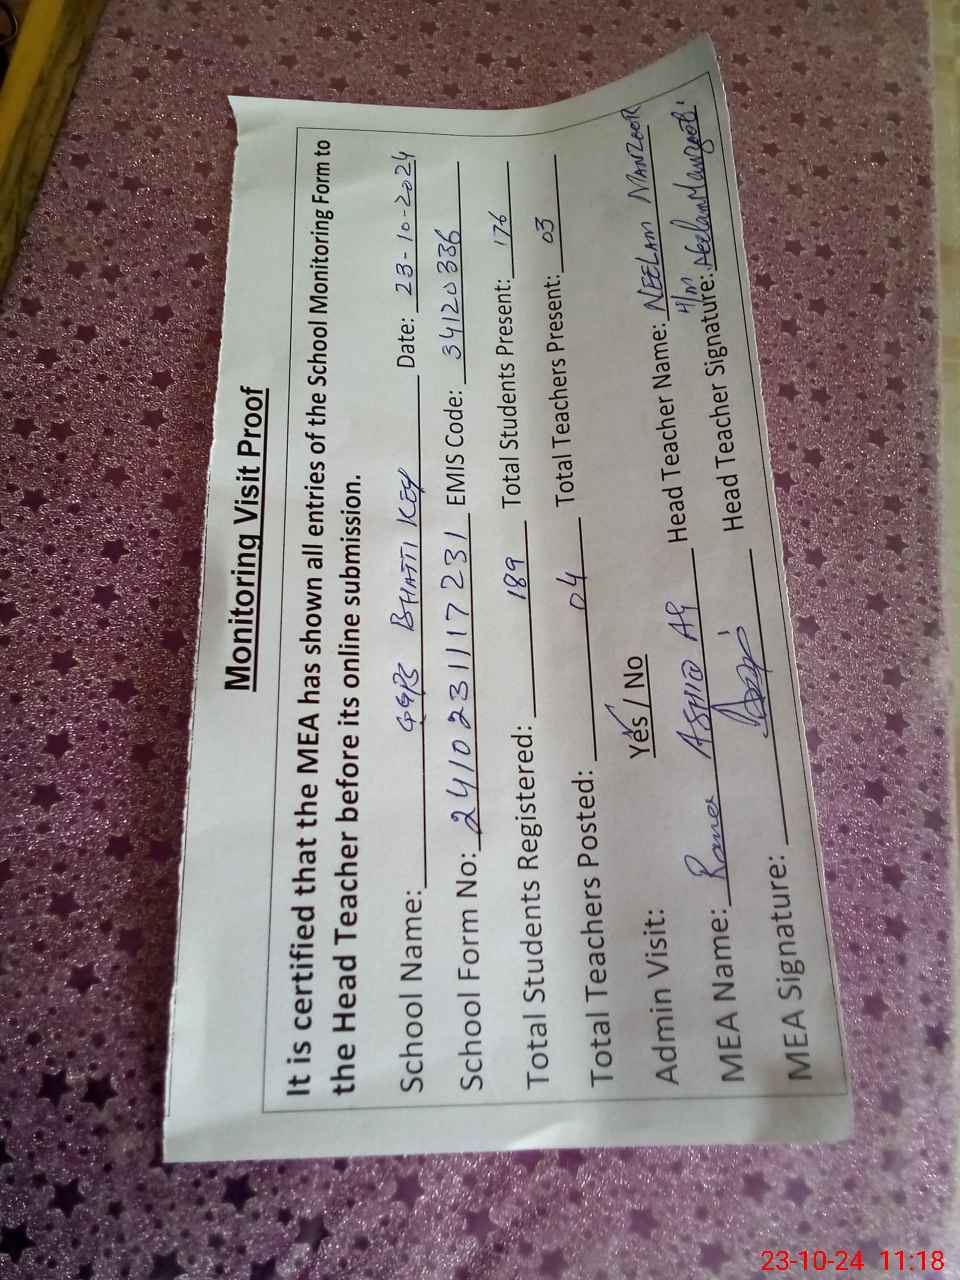 Monitoring Visit Proof
It is certified that the MEA has shown all entries of the School Monitoring Form to
the Head Teacher before its online submission.
School Name: GGPS BHATTI KEY Date: 23-10-2024
School Form No: 2410231117231 EMIS Code: 34120336
Total Students Registered: 189 Total Students Present: 176
Total Teachers Posted: 04 Total Teachers Present: 03
Admin Visit: Yes / No
MEA Name: Rana ASHIQ Ali Head Teacher Name: NEELAM MANZOOR
H/M
MEA Signature: Head Teacher Signature: Neelam Manzoor
23-10-24 11:18